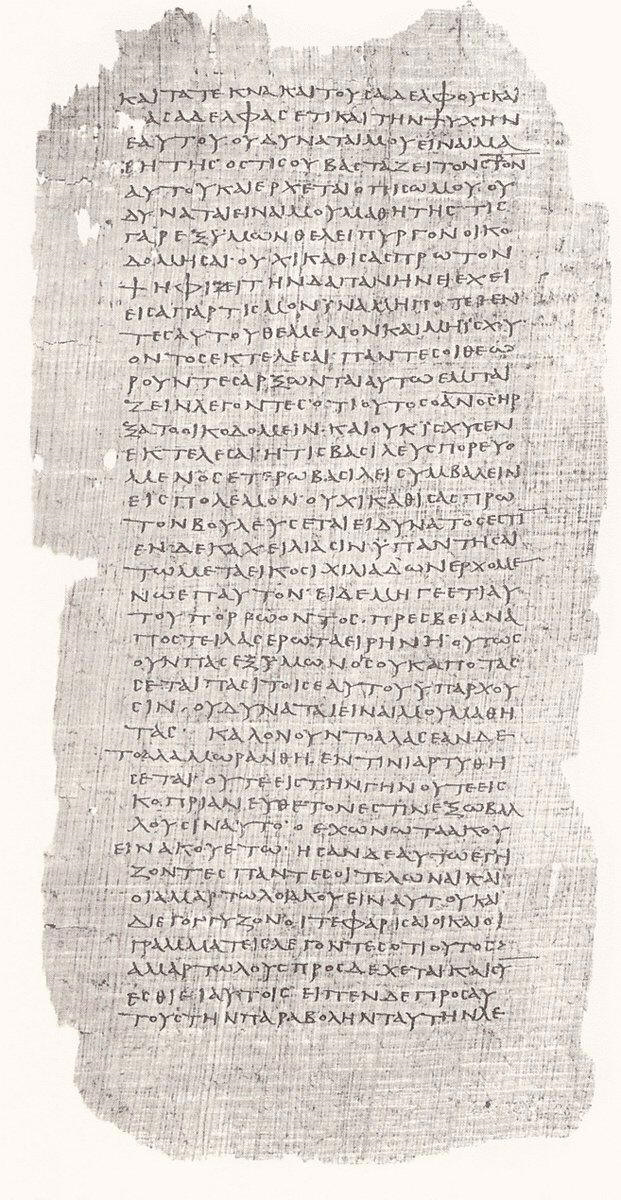 ΚΑΙΤΑΤΕΚΝΑΚΑΙΤΟΥСΑΔΕΛΦΟΥСΚΑΙ
ΑСΑΔΕΛΦΑСΕΤΙΚΑΙΤΗΝΨΥΧΗΝ
ΕΑΥΤΟΥ·ΟΥΔΥΝΑΤΑΙΜΟΥΕΙΝΑΙΜΑ
ΘΗΤΗС·ΟСΤΙСΟΥΒΑСΤΑΖΕΙΤΟΝСΤΡΟΝ
ΑΥΤΟΥΚΑΙΕΡΧΕΤΑΙΟΠΙСΩΜΟΥ·ΟΥ
ΔΥΝΑΤΑΙΕΙΝΑΙΜΟΥΜΑΘΗΤΗС·ΤΙС
ΓΑΡΕΞΥΜΩΝΘΕΛΕΙΠΥΡΓΟΝΟΙΚΟ
ΔΟΜΗСΑΙ·ΟΥΧΙΚΑΘΙСΑСΠΡΩΤΟΝ
ΨΗΦΙΖΕΙΤΗΝΔΑΠΑΝΗΝΕΙΕΧΕΙ
ΕΙСΑΠΑΡΤΙСΜΟΝΪΝΑΜΗΠΟΤΕΘΕΝ
ΤΕСΑΥΤΟΥΘΕΜΕΛΙΟΝΚΑΙΜΗΙСΧΥ
ΟΝΤΟСΕΚΤΕΛΕСΑΙ·ΠΑΝΤΕСΟΙΘΕΩ
ΡΟΥΝΤΕСΑΡΞΩΝΤΑΙΑΥΤΩΕΜΠΑΙ
ΖΕΙΝΛΕΓΟΝΤΕС·ΟΤΙΟΥΤΟСΟΑΝΟСΗΡ
ΞΑΤΟΟΙΚΟΔΟΜΕΙΝ·ΚΑΙΟΥΚΙСΧΥСΕΝ
ΕΚΤΕΛΕСΑΙ·ΗΤΙСΒΑСΙΛΕΥСΠΟΡΕΥΟ
ΜΕΝΟСΕΤΕΡΩΒΑСΙΛΕΙСΥΜΒΑΛΕΙΝ
ΕΙСΠΟΛΕΜΟΝ·ΟΥΧΙΚΑΘΙСΑСΠΡΩ
ΤΟΝΒΟΥΛΕΥСΕΤΑΙΕΙΔΥΝΑΤΟСΕСΤΙ
ΕΝΔΕΚΑΧΕΙΛΙΑСΙΝΫΠΑΝΤΗСΑΙ
ΤΩΜΕΤΑΕΙΚΟСΙΧΙΛΙΑΔΩΝΕΡΧΟΜΕ
ΝΩΕΠΑΥΤΟΝ·ΕΙΔΕΜΗΓΕΕΤΙΑΥ
ΤΟΥΠΟΡΡΩΟΝΤΟС·ΠΡΕСΒΕΙΑΝΑ
ΠΟСΤΕΙΛΑСΕΡΩΤΑΕΙΡΗΝΗ·ΟΥΤΩС
ΟΥΝΠΑСΕΞΫΜΩΝΟСΟΥΚΑΠΟΤΑС
СΕΤΑΙΠΑСΙΤΟΙСΕΑΥΤΟΥΫΠΑΡΧΟΥ
СΙΝ·ΟΥΔΥΝΑΤΑΙΕΙΝΑΙΜΟΥΜΑΘΗ
ΤΑС· ΚΑΛΟΝΟΥΝΤΟΑΛΑСΕΑΝΔΕ
ΤΟΑΛΑΜΩΡΑΝΘΗ·ΕΝΤΙΝΙΑΡΤΥΘΗ
СΕΤΑΙ·ΟΥΤΕΕΙСΤΗΝΓΗΝΟΥΤΕΕΙС
ΚΟΠΡΙΑΝΕΥΘΕΤΟΝΕСΤΙΝΕΞΩΒΑΛ
ΛΟΥСΙΝΑΥΤΟ·Ο ΕΧΩΝΩΤΑΑΚΟΥ
ΕΙΝΑΚΟΥΕΤΩ·ΗСΑΝΔΕΑΥΤΩΕΓΓΙ
ΖΟΝΤΕСΠΑΝΤΕСΟΙΤΕΛΩΝΑΙΚΑΙ
ΟΙΑΜΑΡΤΩΛΟΙΑΚΟΥΕΙΝΑΥΤΟΥΚΑΙ
ΔΙΕΓΟΓΓΥΖΟΝΟΙΤΕΦΑΡΙСΑΙΟΙΚΑΙΟΙ
ΓΡΑΜΜΑΤΕΙСΛΕΓΟΝΤΕСΟΤΙΟΥΤΟС
ΑΜΑΡΤΩΛΟΥСΠΡΟСΔΕΧΕΤΑΙΚΑΙСΥ
ΕСΘΙΕΙΑΥΤΟΙС ΕΙΠΕΝΔΕΠΡΟСΑΥ
ΤΟΥСΤΗΝΠΑΡΑΒΟΛΗΝΤΑΥΤΗΝΛΕ